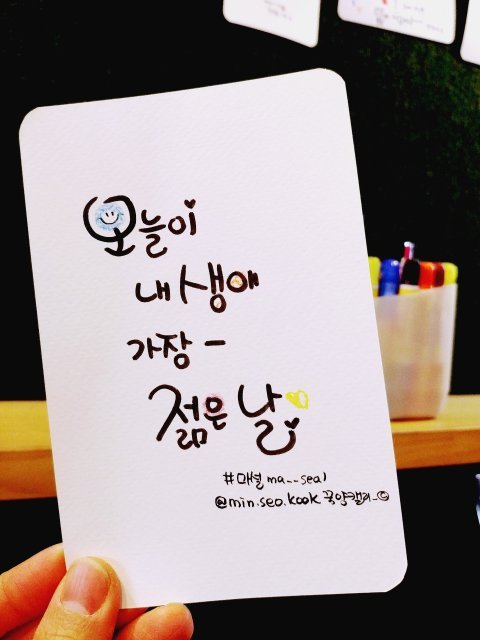 오늘이
내 생애
가장 -
젊은 날
#매설 ma__seal
@min.seo.kook 꾹양캘리_☺